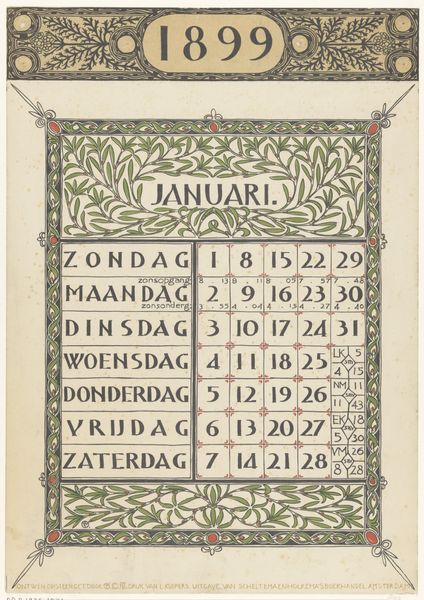 1899
JANUARI.
ZONDAG 1 8 15 22 29
zonsopgang 8 13 8 11 8 05 7 57 7 48
MAANDAG 2 9 16 23 30
zonsonderg. 3 55 4 04 4 13 4 27 4 40
DINSDAG 3 10 17 24 31
WOENSDAG 4 11 18 25 LK 5
4 15
DONDERDAG 5 12 19 26 NM 11
11 43
VRIJDAG 6 13 20 27 EK 18
5 30
ZATERDAG 7 14 21 28 VM 26
8 28
DRUK VAN L. KUIPERS. UITGAVE VAN SCHELTEMA EN HOLKEMA'S BOEKHANDEL AMSTERDAM